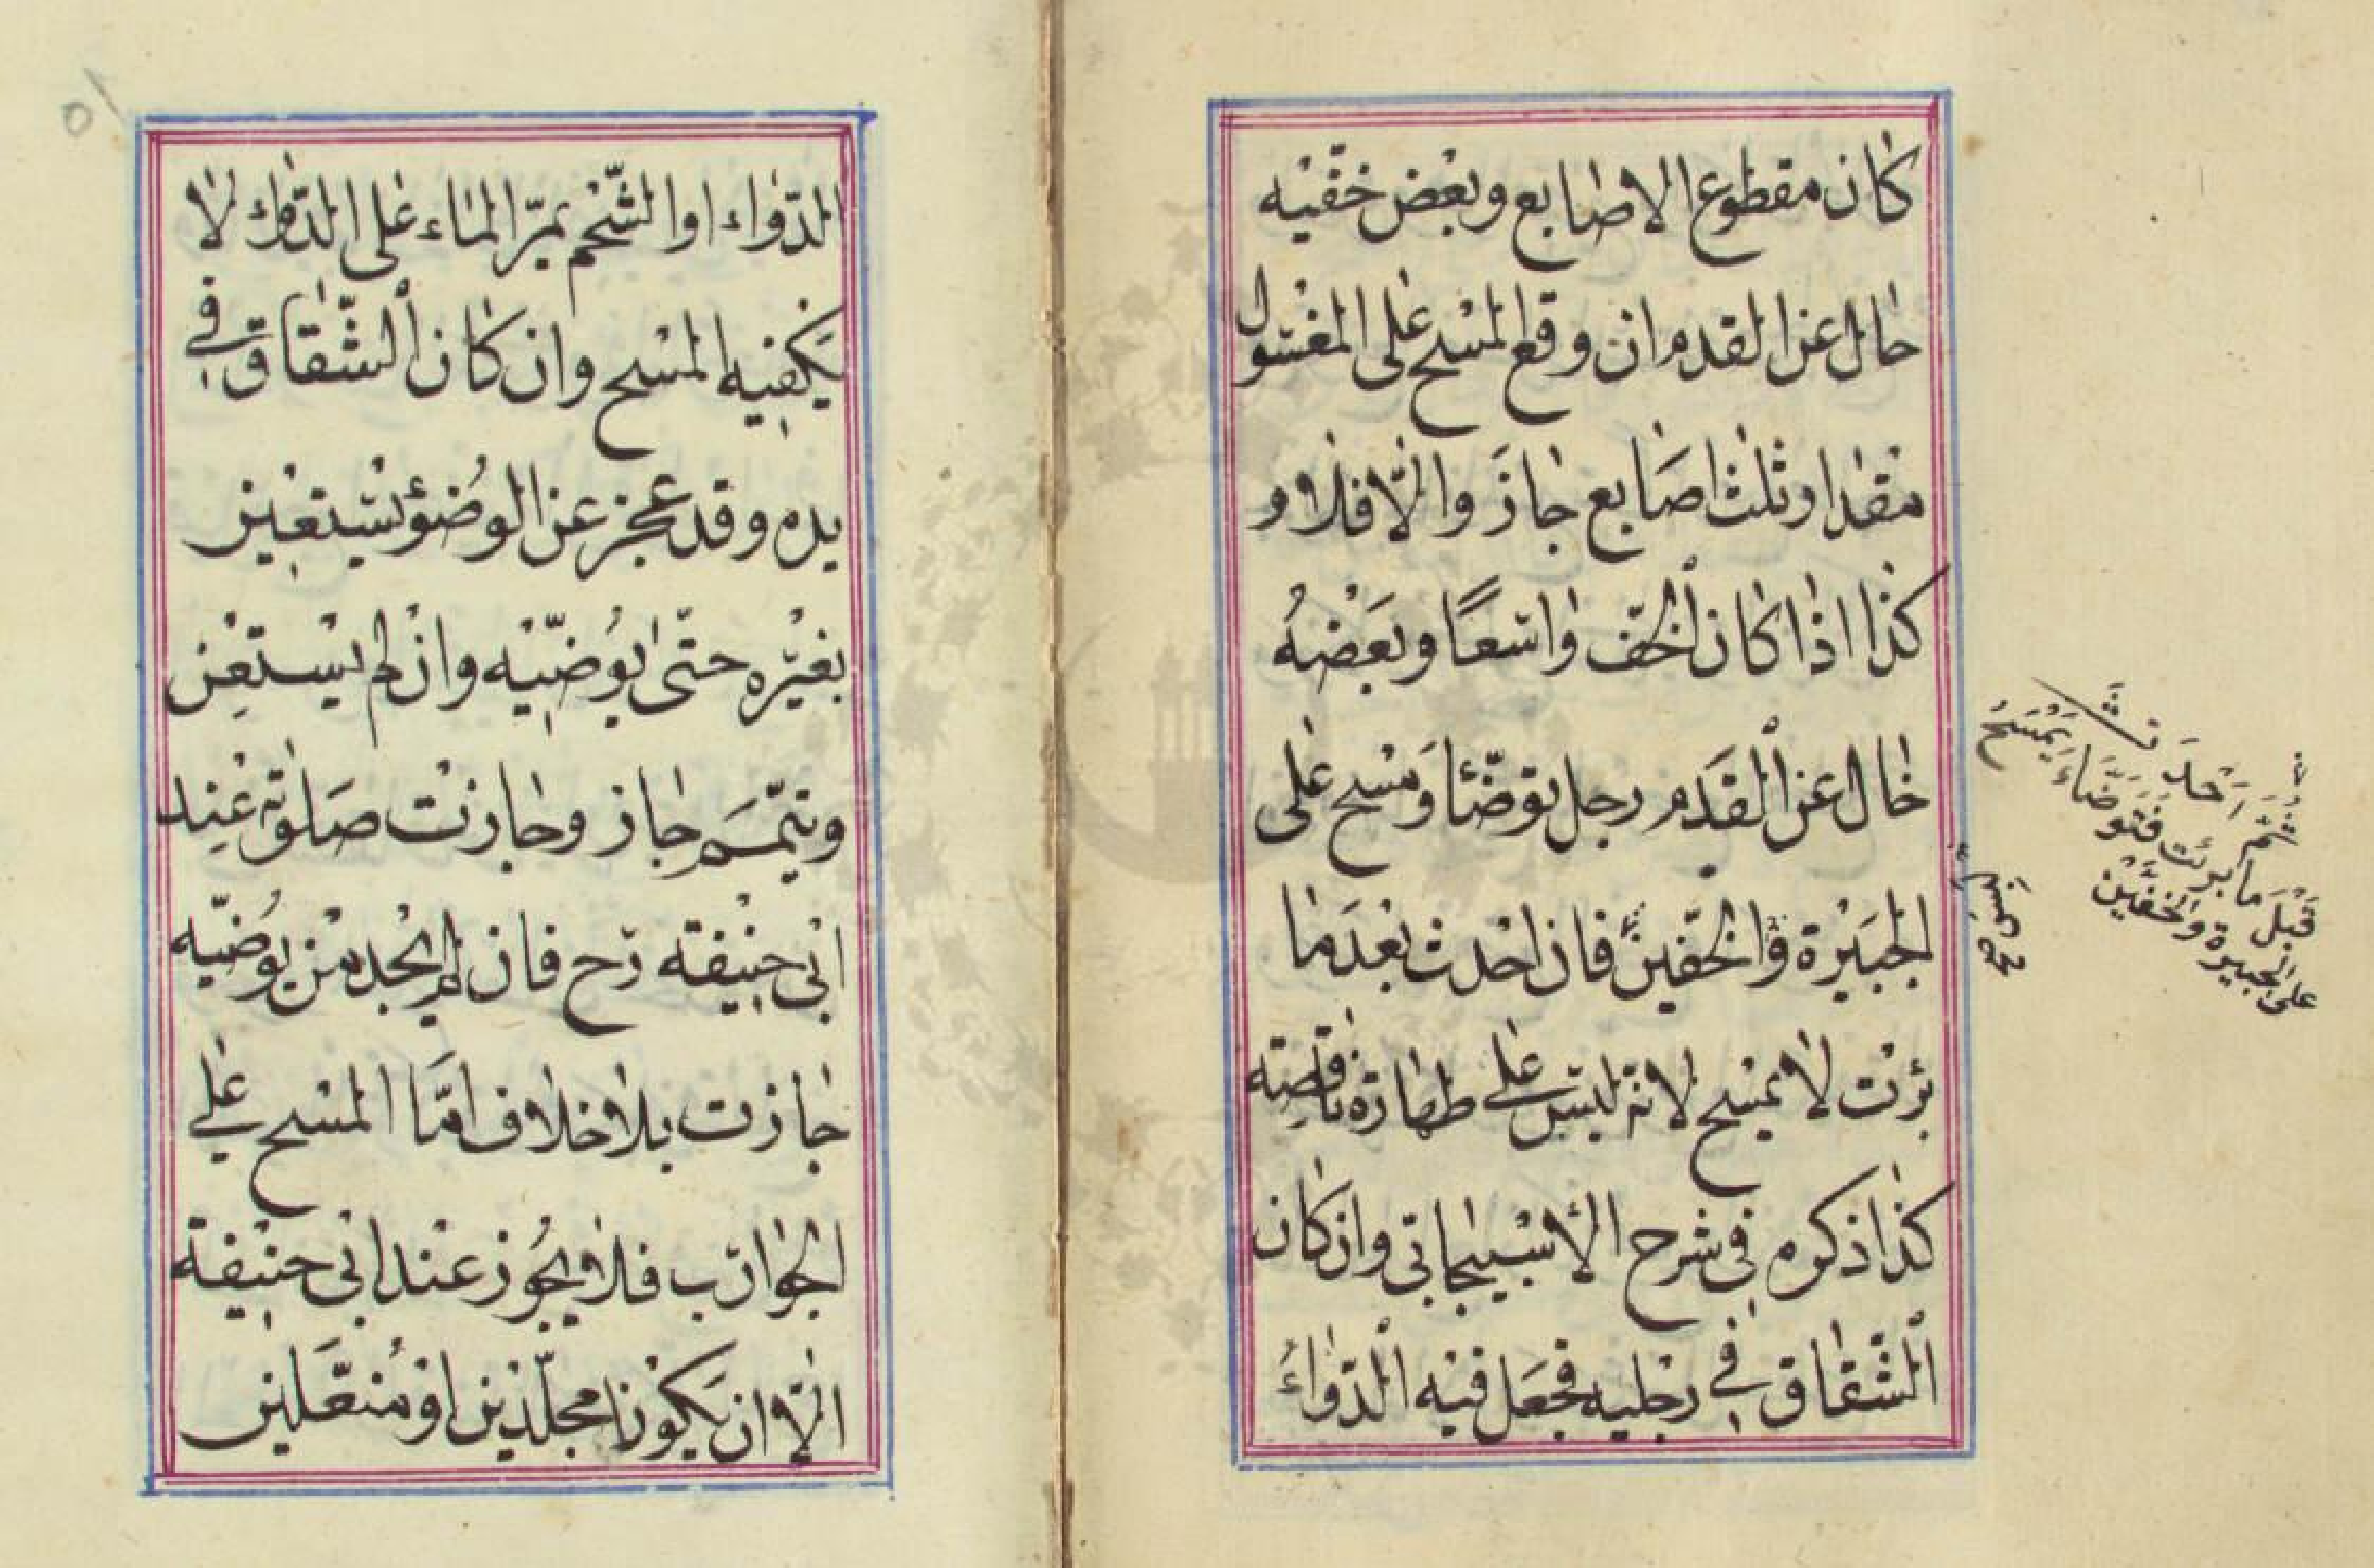 كان مقطوع الاصابع وبعض خفّيه
خال عن القدم ان وقع المسح على المغسول
مقدار ثلث اصابع جاز والّا فلا و
كذا اذا كان الخفّ واسعًا وبعضه
خال عن القدم رجل توضّأ ومسح على
الجبيرة والخفّين فان احدث بعد ما
برئت لا يمسح لانه لبس على طهارة ناقصة
كذا ذكره فى شرح الأسبيجابى وان كان
الشّقاق فى رجليه فجعل فيه الدّواء
ثمّ احدث
قبل ما برئت فتوضّاء يمسح
على الجبيرة والخفّين
لبس
صح
٥١
الدّواء او الشّحم يمرّ الماء على الدّواء لا
يكفيه المسح وان كان الشّقاق فى
يده وقد عجز عن الوضوء يستعين
بغيره حتّى يوضّيه وان لم يستعن
وتيمّم جاز وجازت صلوته عند
ابى حنيفة رح فان لم يجد من يوضّيه
جازت بلا خلاف امّا المسح على
الجوارب فلا يجوز عند ابى حنيفة
الّا ان يكونا مجلّدين او منعّلين